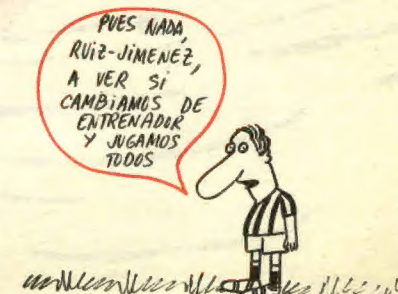 PUES NADA,
RUIZ-JIMENEZ,
A VER SI
CAMBIAMOS DE
ENTRENADOR
Y JUGAMOS
TODOS